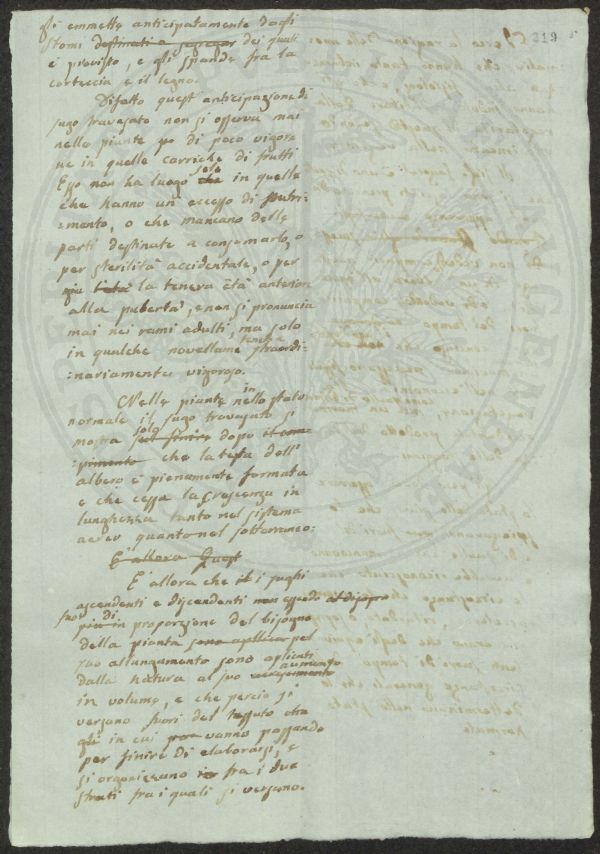 gli emette anticipatamente dagli 319
stomi destinati a segregar dei quali
è provisto, e gli spande fra la
corteccia e il legno.
Difatto quest'anticipazione di
sugo travasato non si osserva mai
nelle piante po di poco vigore
ne in quelle carriche di frutti
Esso non ha luogo solo che in quelle
che hanno un eccesso di nutri:
:mento, o che mancano delle
parti destinate a consumarlo, o
per sterilità accidentale, o per
la tenera età anteriore
alla pubertà, e non si pronuncia
mai nei rami adulti, ma solo
in qualche novellame tenero straordi:
:nariamente vigoroso.
Nelle piante in nello stato
normale il sugo travasato si
mostra solo sul finire dopo il com:
:pimento che la testa dell'
albero è pienamente formata
e che cessa la crescenza in
lunghezza tanto nel sistema
aereo quanto nel sotterraneo:
E allora Quest
E allora che il i sughi
ascendenti e discendenti non essendo al disopra
fuor di più in proporzione del bisogno
della pianta sono applicar pel
suo allungamento sono aplicati
dalla natura al suo aumento
in volume, e che perciò si
versano fuori del tessuto che
gli in cui vanno passando
per finire di elaborarsi, e
si organizzano in fra i due
strati fra i quali si versano.